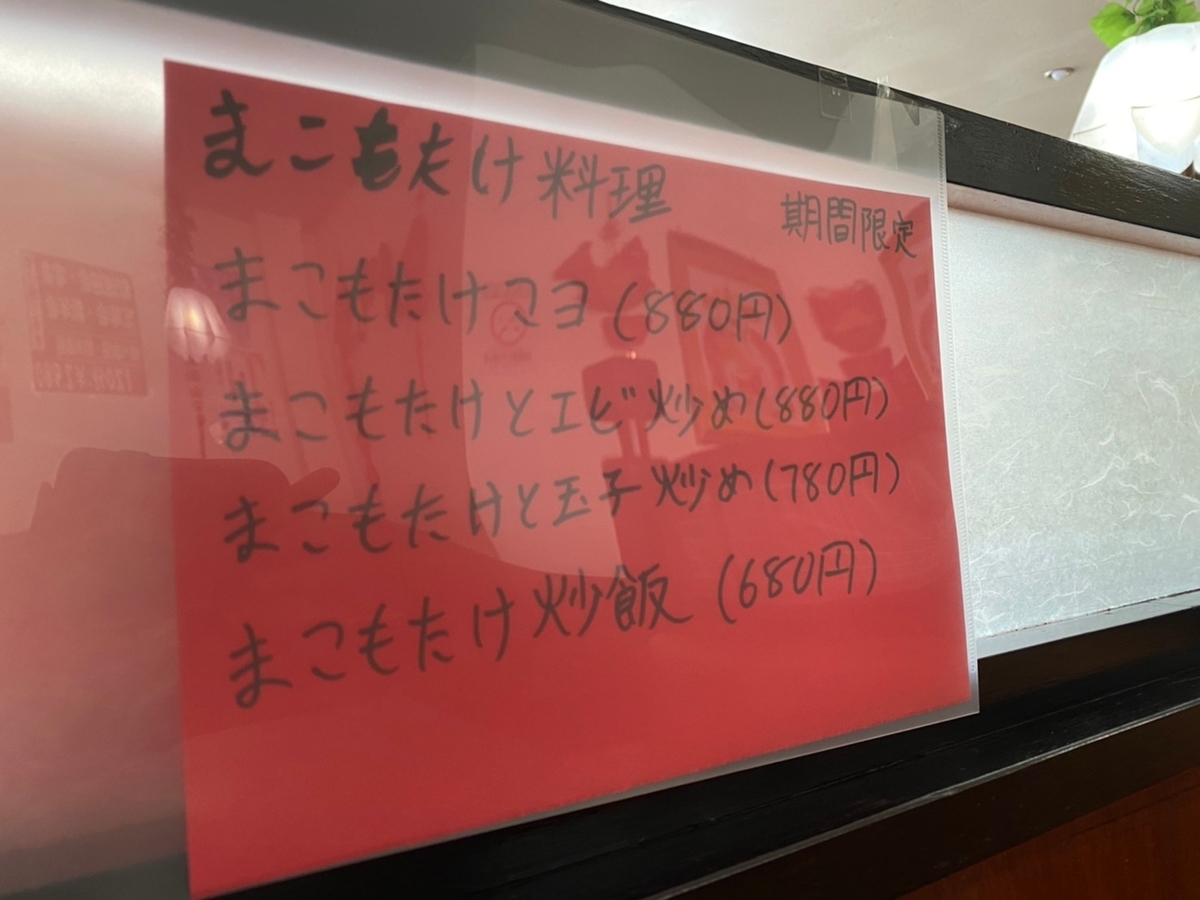 まこもたけ料理
期間限定
まこもたけマヨ(880円)
まこもたけとエビ炒め(880円)
まこもたけと玉子炒め(780円)
まこもたけ炒飯(680円)